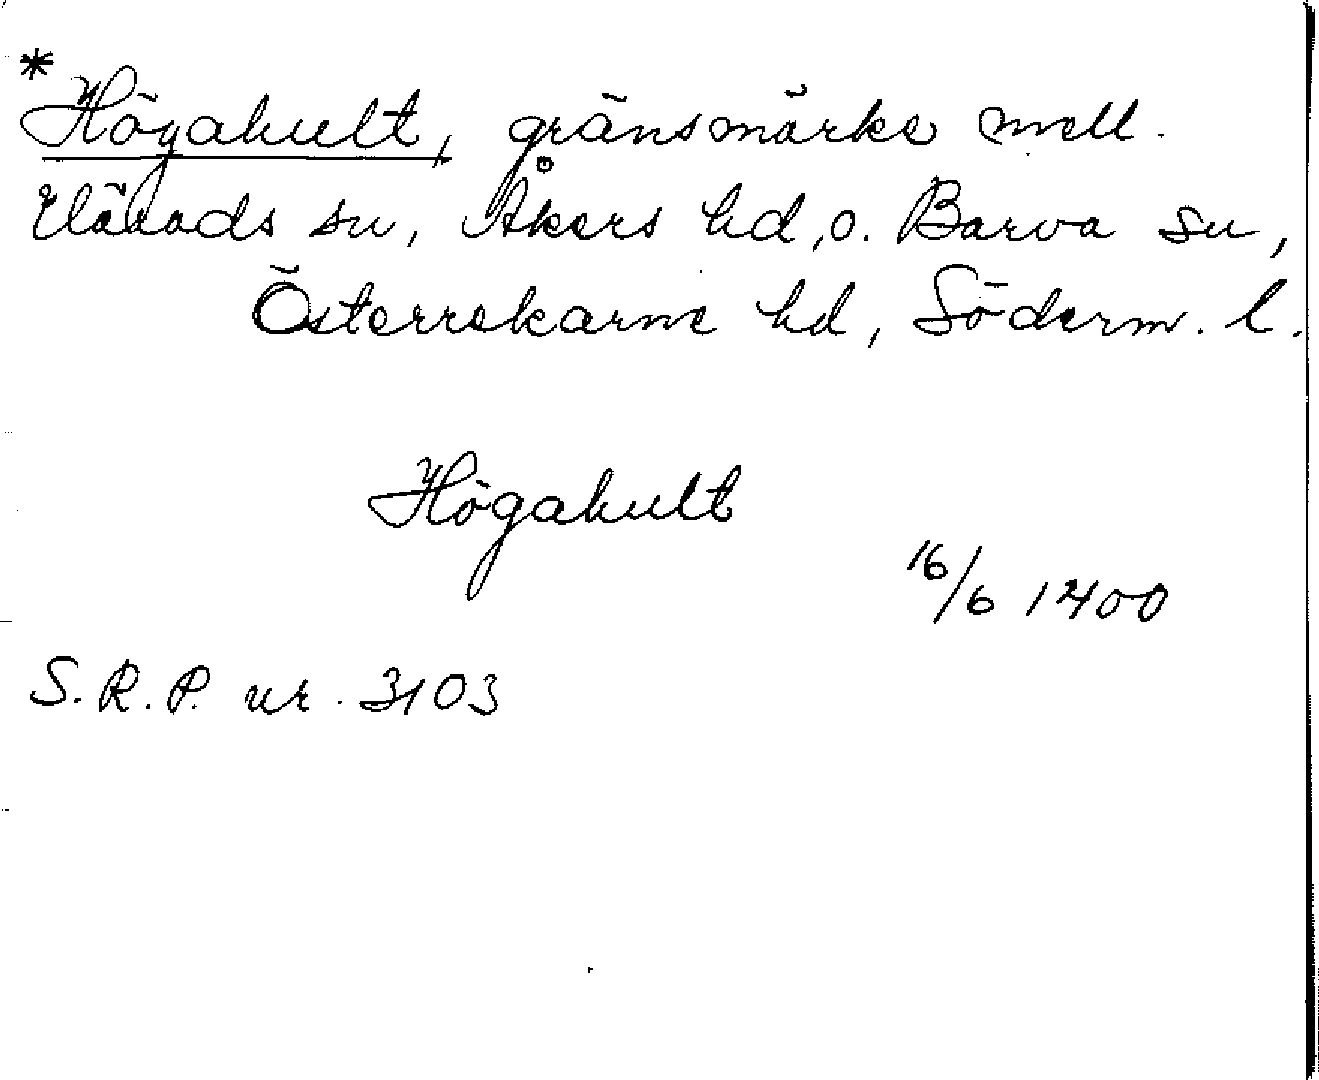 *
Högahult, gränsmärke mell.
Härads sn, Åkers hd, o. Barva sn,
Österrekarne hd, Söderm. l.
Högahult
16/6 1400
S.R.P. nr. 3103